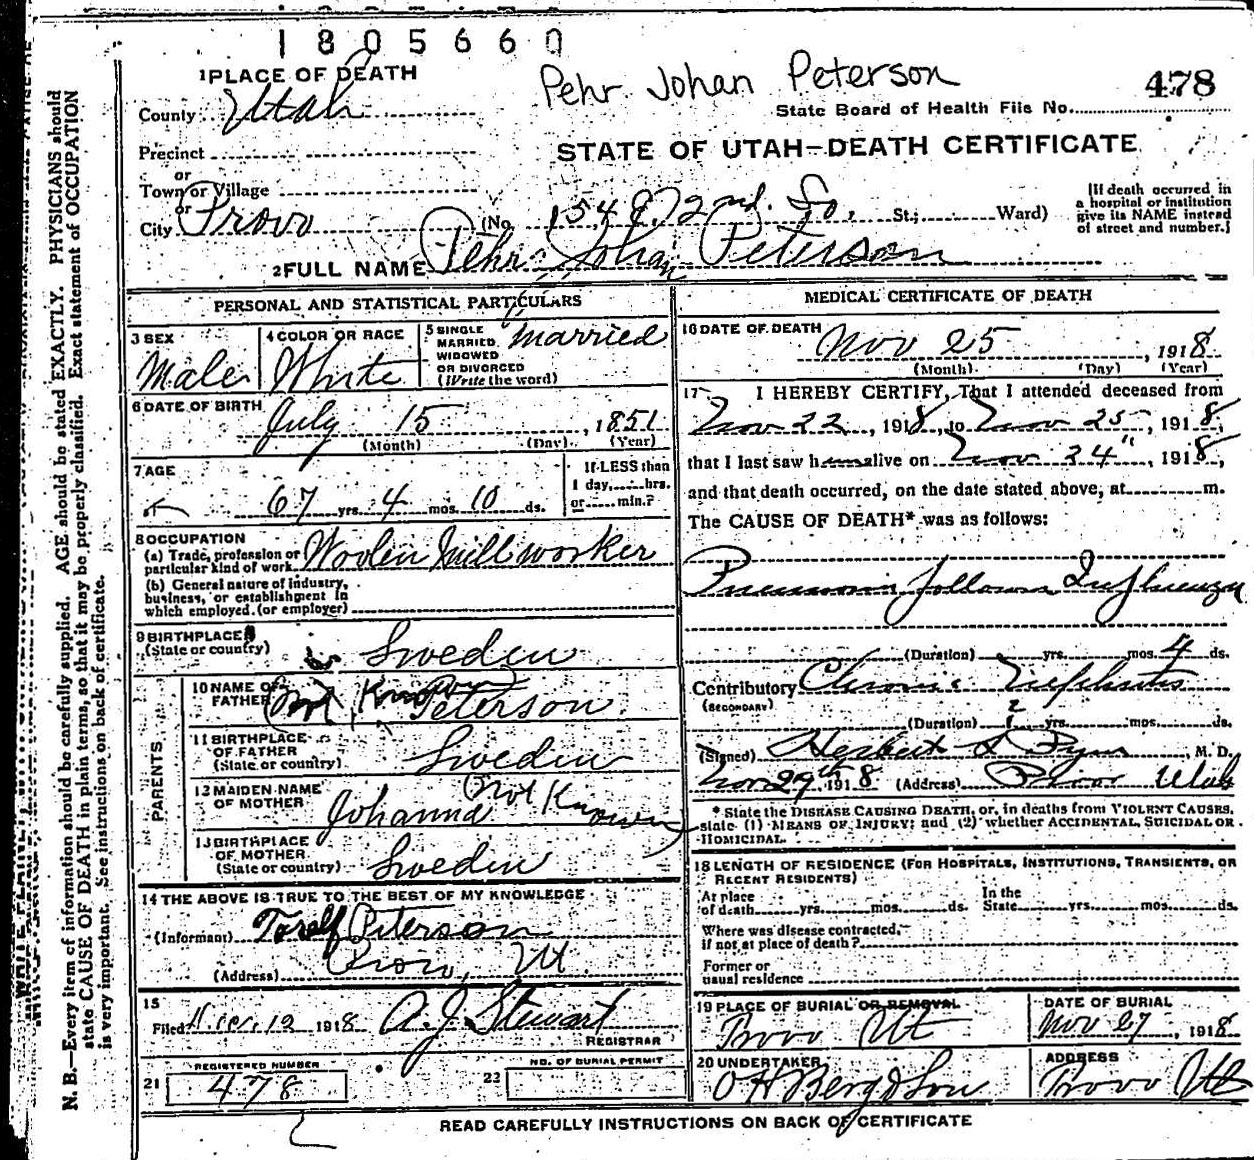 1805660
Pehr Johan Peterson
478
1 PLACE OF DEATH
County Utah
State Board of Health File No.
Precinct
STATE OF UTAH—DEATH CERTIFICATE
or
Town or Village
or
City Provo (No. 154 2nd. So. St.; Ward)
[If death occurred in
a hospital or institution
give its NAME instead
of street and number.]
2 FULL NAME Pehr Johan Peterson
PERSONAL AND STATISTICAL PARTICULARS
3 SEX
Male
4 COLOR OR RACE
White
5 SINGLE
MARRIED,
WIDOWED
OR DIVORCED
(Write the word)
Married
6 DATE OF BIRTH
July 15, 1851
(Month) (Day) (Year)
7 AGE
67 yrs. 4 mos. 10 ds.
If LESS than
1 day, hrs.
or min.?
8 OCCUPATION
(a) Trade, profession or
particular kind of work Woolen Mill worker
(b) General nature of industry,
business, or establishment in
which employed (or employer)
9 BIRTHPLACE
(State or country)
Sweden
PARENTS
10 NAME OF
FATHER
Peterson
11 BIRTHPLACE
OF FATHER
(State or country)
Sweden
12 MAIDEN NAME
OF MOTHER
Johanna Not Known
13 BIRTHPLACE
OF MOTHER
(State or country)
Sweden
14 THE ABOVE IS TRUE TO THE BEST OF MY KNOWLEDGE
(Informant) Peterson
(Address) Provo, Ut
15
Filed 12 1918 A. J. Stewart
REGISTRAR
REGISTERED NUMBER
21 478
NO. OF BURIAL PERMIT
22
MEDICAL CERTIFICATE OF DEATH
16 DATE OF DEATH
Nov 25, 1918
(Month) (Day) (Year)
17 I HEREBY CERTIFY, That I attended deceased from
Nov 22, 1918, to Nov 25, 1918,
that I last saw him alive on Nov 24", 1918,
and that death occurred, on the date stated above, at m.
The CAUSE OF DEATH* was as follows:
Pneumonia following Influenza
(Duration) yrs. mos. 4 ds.
Contributory Chronic Nephritis
(SECONDARY)
(Duration) yrs. mos. ds.
(Signed) Herbert S Pyne, M. D.
Nov 29th, 1918 (Address) Provo Utah
* State the DISEASE CAUSING DEATH, or, in deaths from VIOLENT CAUSES,
state (1) MEANS OF INJURY; and (2) whether ACCIDENTAL, SUICIDAL OR
HOMICIDAL.
18 LENGTH OF RESIDENCE (FOR HOSPITALS, INSTITUTIONS, TRANSIENTS, OR
RECENT RESIDENTS)
At place
of death yrs. mos. ds.
In the
State yrs. mos. ds.
Where was disease contracted,
if not at place of death?
Former or
usual residence
19 PLACE OF BURIAL OR REMOVAL
Provo Ut
DATE OF BURIAL
Nov 27, 1918
20 UNDERTAKER
O H Berg & Son
ADDRESS
Provo Ut
READ CAREFULLY INSTRUCTIONS ON BACK OF CERTIFICATE
N. B.—Every item of information should be carefully supplied. AGE should be stated EXACTLY. PHYSICIANS should
state CAUSE OF DEATH in plain terms, so that it may be properly classified. Exact statement of OCCUPATION
is very important. See instructions on back of certificate.